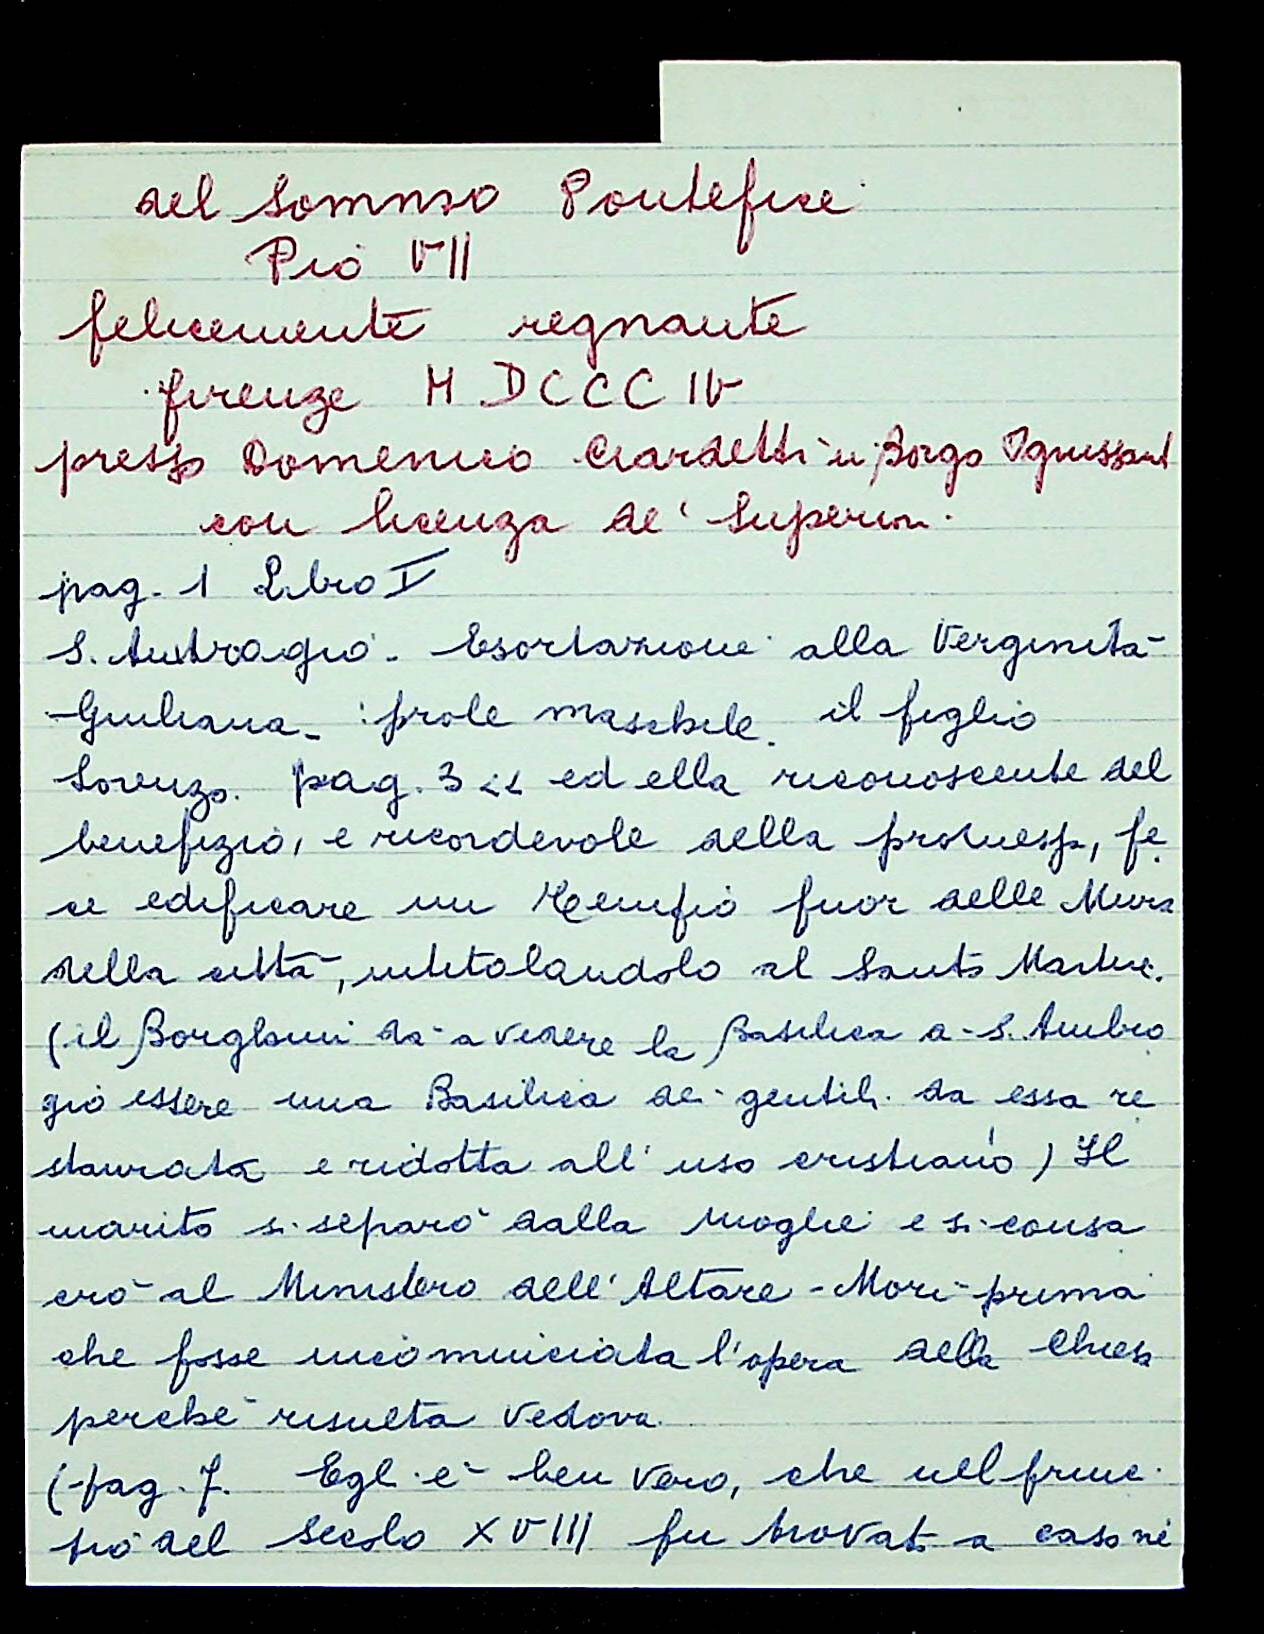 del Sommo Pontefice
Pio VII
felicemente regnante
firenze MDCCCIV
presso Domenico Ciardetti in Borgo Ognissanti
con licenza de' Superiori.
pag. 1 Libro I
S. Ambrogio - Esortazione alla Verginità -
Giuliana - : prole maschile. il figlio
Lorenzo. pag. 3 << ed ella riconoscente del
benefizio, e ricordevole della promessa, fe
ce edificare un Tempio fuor delle Mura
della città, intitolandolo al Santo Martire.
(il Borghini dà a vedere la Basilica a S. Ambro
gio essere una Basilica dei gentili da essa re
staurata e ridotta all'uso cristiano) Il
marito si separò dalla moglie e si consa
crò al Ministero dell'Altare - Morì prima
che fosse incominciata l'opera della Chiesa
perchè risulta vedova.
(pag. 7. Egli è ben vero, che nel princi
pio del secolo XVIII fu trovato a caso ne